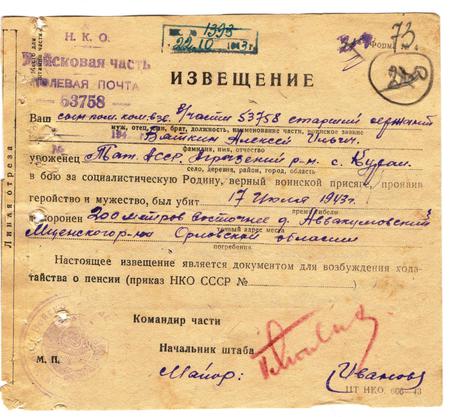 № 1393
22.10 1943 г.
73
Форма № 4
Н. К. О.
Войсковая часть
ПОЛЕВАЯ ПОЧТА
53758
№
ИЗВЕЩЕНИЕ
Ваш сын пом. ком. взв. в/части 53758 старший сержант
муж, отец, сын, брат, должность, наименование части, воинское звание
Алексей Ильич
фамилия, имя, отчество
уроженец Тат. АССР, р-н с.
село, деревня, район, город, область
в бою за социалистическую Родину, верный воинской присяге, проявив
геройство и мужество, был убит 17 июля 1943 г.
похоронен 200 метров восточнее д. Аввакумовский
точный адрес места
Мценского р-на Орловской области
погребения
Настоящее извещение является документом для возбуждения хода-
тайства о пенсии (приказ НКО СССР №
Командир части
Начальник штаба
М. П.
Майор: Иванов
ЦТ НКО.
Линия отреза